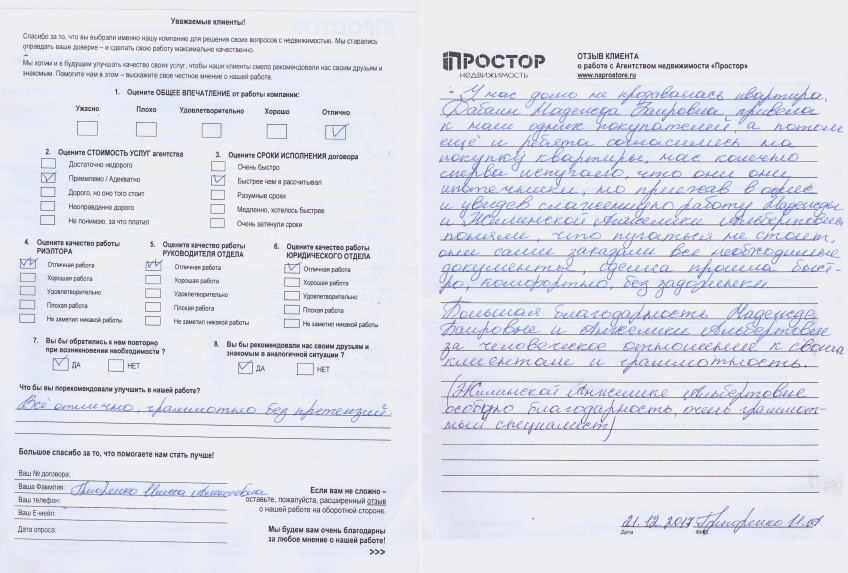 Уважаемые клиенты!
Спасибо за то, что вы выбрали именно нашу компанию для решения своих вопросов с недвижимостью. Мы старались
оправдать ваше доверие – и сделать свою работу максимально качественно.
Мы хотим и в будущем улучшать качество своих услуг, чтобы наши клиенты смело рекомендовали нас своим друзьям и
знакомым. Помогите нам в этом – выскажите свое честное мнение о нашей работе.
1. Оцените ОБЩЕЕ ВПЕЧАТЛЕНИЕ от работы компании:
Ужасно Плохо Удовлетворительно Хорошо Отлично
2. Оцените СТОИМОСТЬ УСЛУГ агентства
Достаточно недорого
Приемлемо / Адекватно
Дорого, но оно того стоит
Неоправданно дорого
Не понимаю, за что платил
3. Оцените СРОКИ ИСПОЛНЕНИЯ договора
Очень быстро
Быстрее чем я рассчитывал
Разумные сроки
Медленно, хотелось быстрее
Очень затянули сроки
4. Оцените качество работы
РИЭЛТОРА
Отличная работа
Хорошая работа
Удовлетворительно
Плохая работа
Не заметил никакой работы
5. Оцените качество работы
РУКОВОДИТЕЛЯ ОТДЕЛА
Отличная работа
Хорошая работа
Удовлетворительно
Плохая работа
Не заметил никакой работы
6. Оцените качество работы
ЮРИДИЧЕСКОГО ОТДЕЛА
Отличная работа
Хорошая работа
Удовлетворительно
Плохая работа
Не заметил никакой работы
7. Вы бы обратились к нам повторно
при возникновении необходимости ?
ДА НЕТ
8. Вы бы рекомендовали нас своим друзьям и
знакомым в аналогичной ситуации ?
ДА НЕТ
Что бы вы порекомендовали улучшить в нашей работе?
Всё отлично, грамотно без претензий.
Большое спасибо за то, что помогаете нам стать лучше!
Ваш № договора:
Ваша Фамилия: Алексеевна
Ваш телефон:
Ваш E-мейл:
Дата опроса:
Если вам не сложно –
оставьте, пожалуйста, расширенный отзыв
о нашей работе на оборотной стороне.
Мы будем вам очень благодарны
за любое мнение о нашей работе!
>>>
ПРОСТОР
НЕДВИЖИМОСТЬ
ОТЗЫВ КЛИЕНТА
о работе с Агентством недвижимости «Простор»
www.naprostore.ru
У нас долго не продавалась квартира,
Надежда Баировна, привела
к нам одних покупателей, а потом
ещё и ребята согласились на
покупку квартиры, нас конечно
сперва испугало, что они
ипотечники, но приехав в офис
и увидев слаженную работу Надежды
и Жилинской Анжелики Альбертовны
поняли, что пугаться не стоит,
они сами заказали все необходимые
документы, сделка прошла быст-
ро, комфортно, без задоринки.
Большая благодарность Надежде
Баировне и Анжелики Альбертовне
за человеческое отношение к своим
клиентам и грамотность.
(Жилинской Анжелике Альбертовне
особую благодарность, очень грамот-
ный специалист)
21.12.2017
Дата ФИО